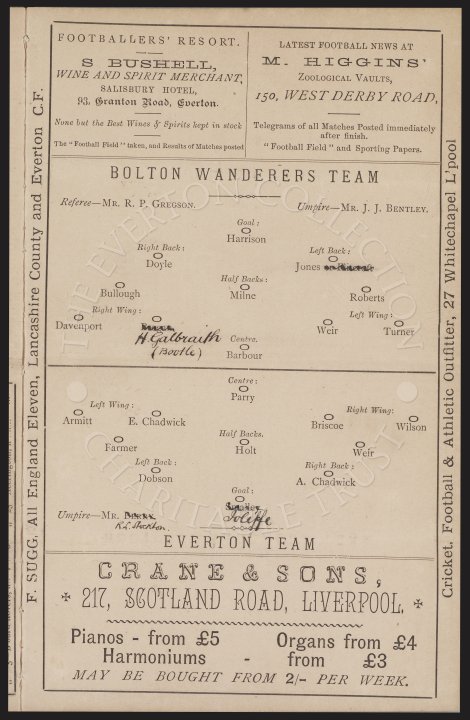 FOOTBALLERS' RESORT.
S BUSHELL,
WINE AND SPIRIT MERCHANT,
SALISBURY HOTEL,
93, Granton Road, Everton.
None but the Best Wines & Spirits kept in stock
The "Football Field" taken, and Results of Matches posted
LATEST FOOTBALL NEWS AT
M. HIGGINS'
ZOOLOGICAL VAULTS,
150, WEST DERBY ROAD,
Telegrams of all Matches Posted immediately
after finish.
"Football Field" and Sporting Papers.
BOLTON WANDERERS TEAM
Referee—MR. R. P. GREGSON. Umpire—MR. J. J. BENTLEY.
Goal:
Harrison
Right Back: Left Back:
Doyle Jones
Half Backs:
Bullough Milne Roberts
Right Wing: Left Wing:
Davenport Weir Turner
H. Galbraith
(Bootle)
Centre.
Barbour
Centre:
Parry
Left Wing: Right Wing:
Armitt E. Chadwick Briscoe Wilson
Half Backs.
Farmer Holt Weir
Left Back: Right Back:
Dobson A. Chadwick
Goal:
Smalley
Joliffe
Umpire—MR.
R. L. Stockton.
EVERTON TEAM
CRANE & SONS,
217, SCOTLAND ROAD, LIVERPOOL.
Pianos - from £5 Organs from £4
Harmoniums - from £3
MAY BE BOUGHT FROM 2/- PER WEEK.
F. SUGG, All England Eleven, Lancashire County and Everton C.F.
Cricket, Football & Athletic Outfitter, 27 Whitechapel L'pool
THE EVERTON COLLECTION
CHARITABLE TRUST